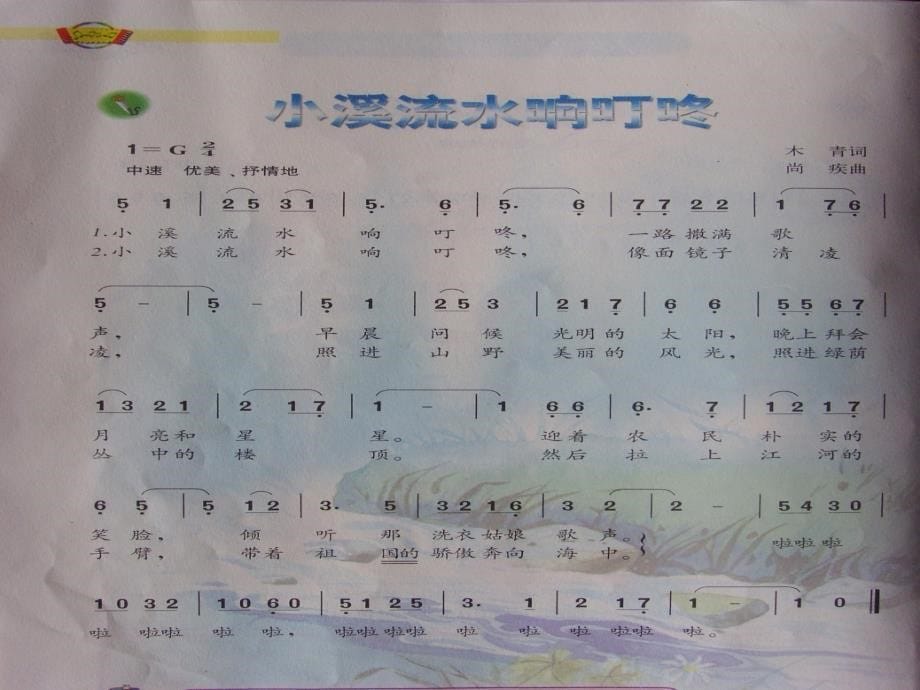 小溪流水响叮咚
1=G 2/4
木 青词
中速 优美、抒情地
尚 疾曲
5 1 | 2 5 3 1 | 5· 6 | 5· 6 | 7 7 2 2 | 1 7 6 |
1.小 溪 流 水 响 叮 咚, 一路撒满 歌
2.小 溪 流 水 响 叮 咚, 像面镜子 清凌
5 - | 5 - | 5 1 | 2 5 3 | 2 2 1 7 | 6 6 | 5 5 6 7 |
声, 早 晨 问 候 光明的 太 阳, 晚上拜会
凌, 照 进 山 野 美丽的 风 光, 照进绿荫
1 3 2 1 | 2 1 7 | 1 - | 1 6 6 | 6· 7 | 1 2 1 7 |
月 亮和 星 星。 迎着 农 民 朴 实的
丛 中的 楼 顶。 然后 拉 上 江 河的
6 5 | 5 1 2 | 3· 5 | 3 2 1 6 | 3 2 | 2 - | 5 4 3 0 |
笑 脸, 倾 听 那 洗衣姑娘 歌 声。 啦啦 啦
手 臂, 带着 祖 国的 骄傲奔向 海 中。
1 0 3 2 | 1 0 6 0 | 5 1 2 5 | 3· 1 | 2 1 7 | 1 - | 1 0 ‖
啦 啦啦 啦 啦, 啦啦啦啦 啦 啦 啦 啦啦 啦。